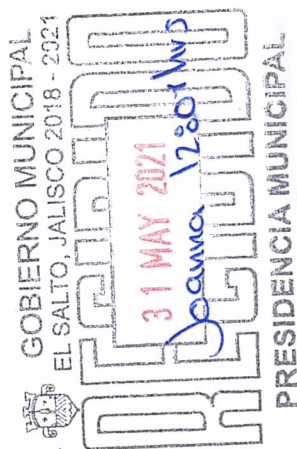 GOBIERNO MUNICIPAL
EL SALTO, JALISCO 2018 - 2021
RECIBIDO
31 MAY 2021
Joanna 12:80 Hrs
PRESIDENCIA MUNICIPAL